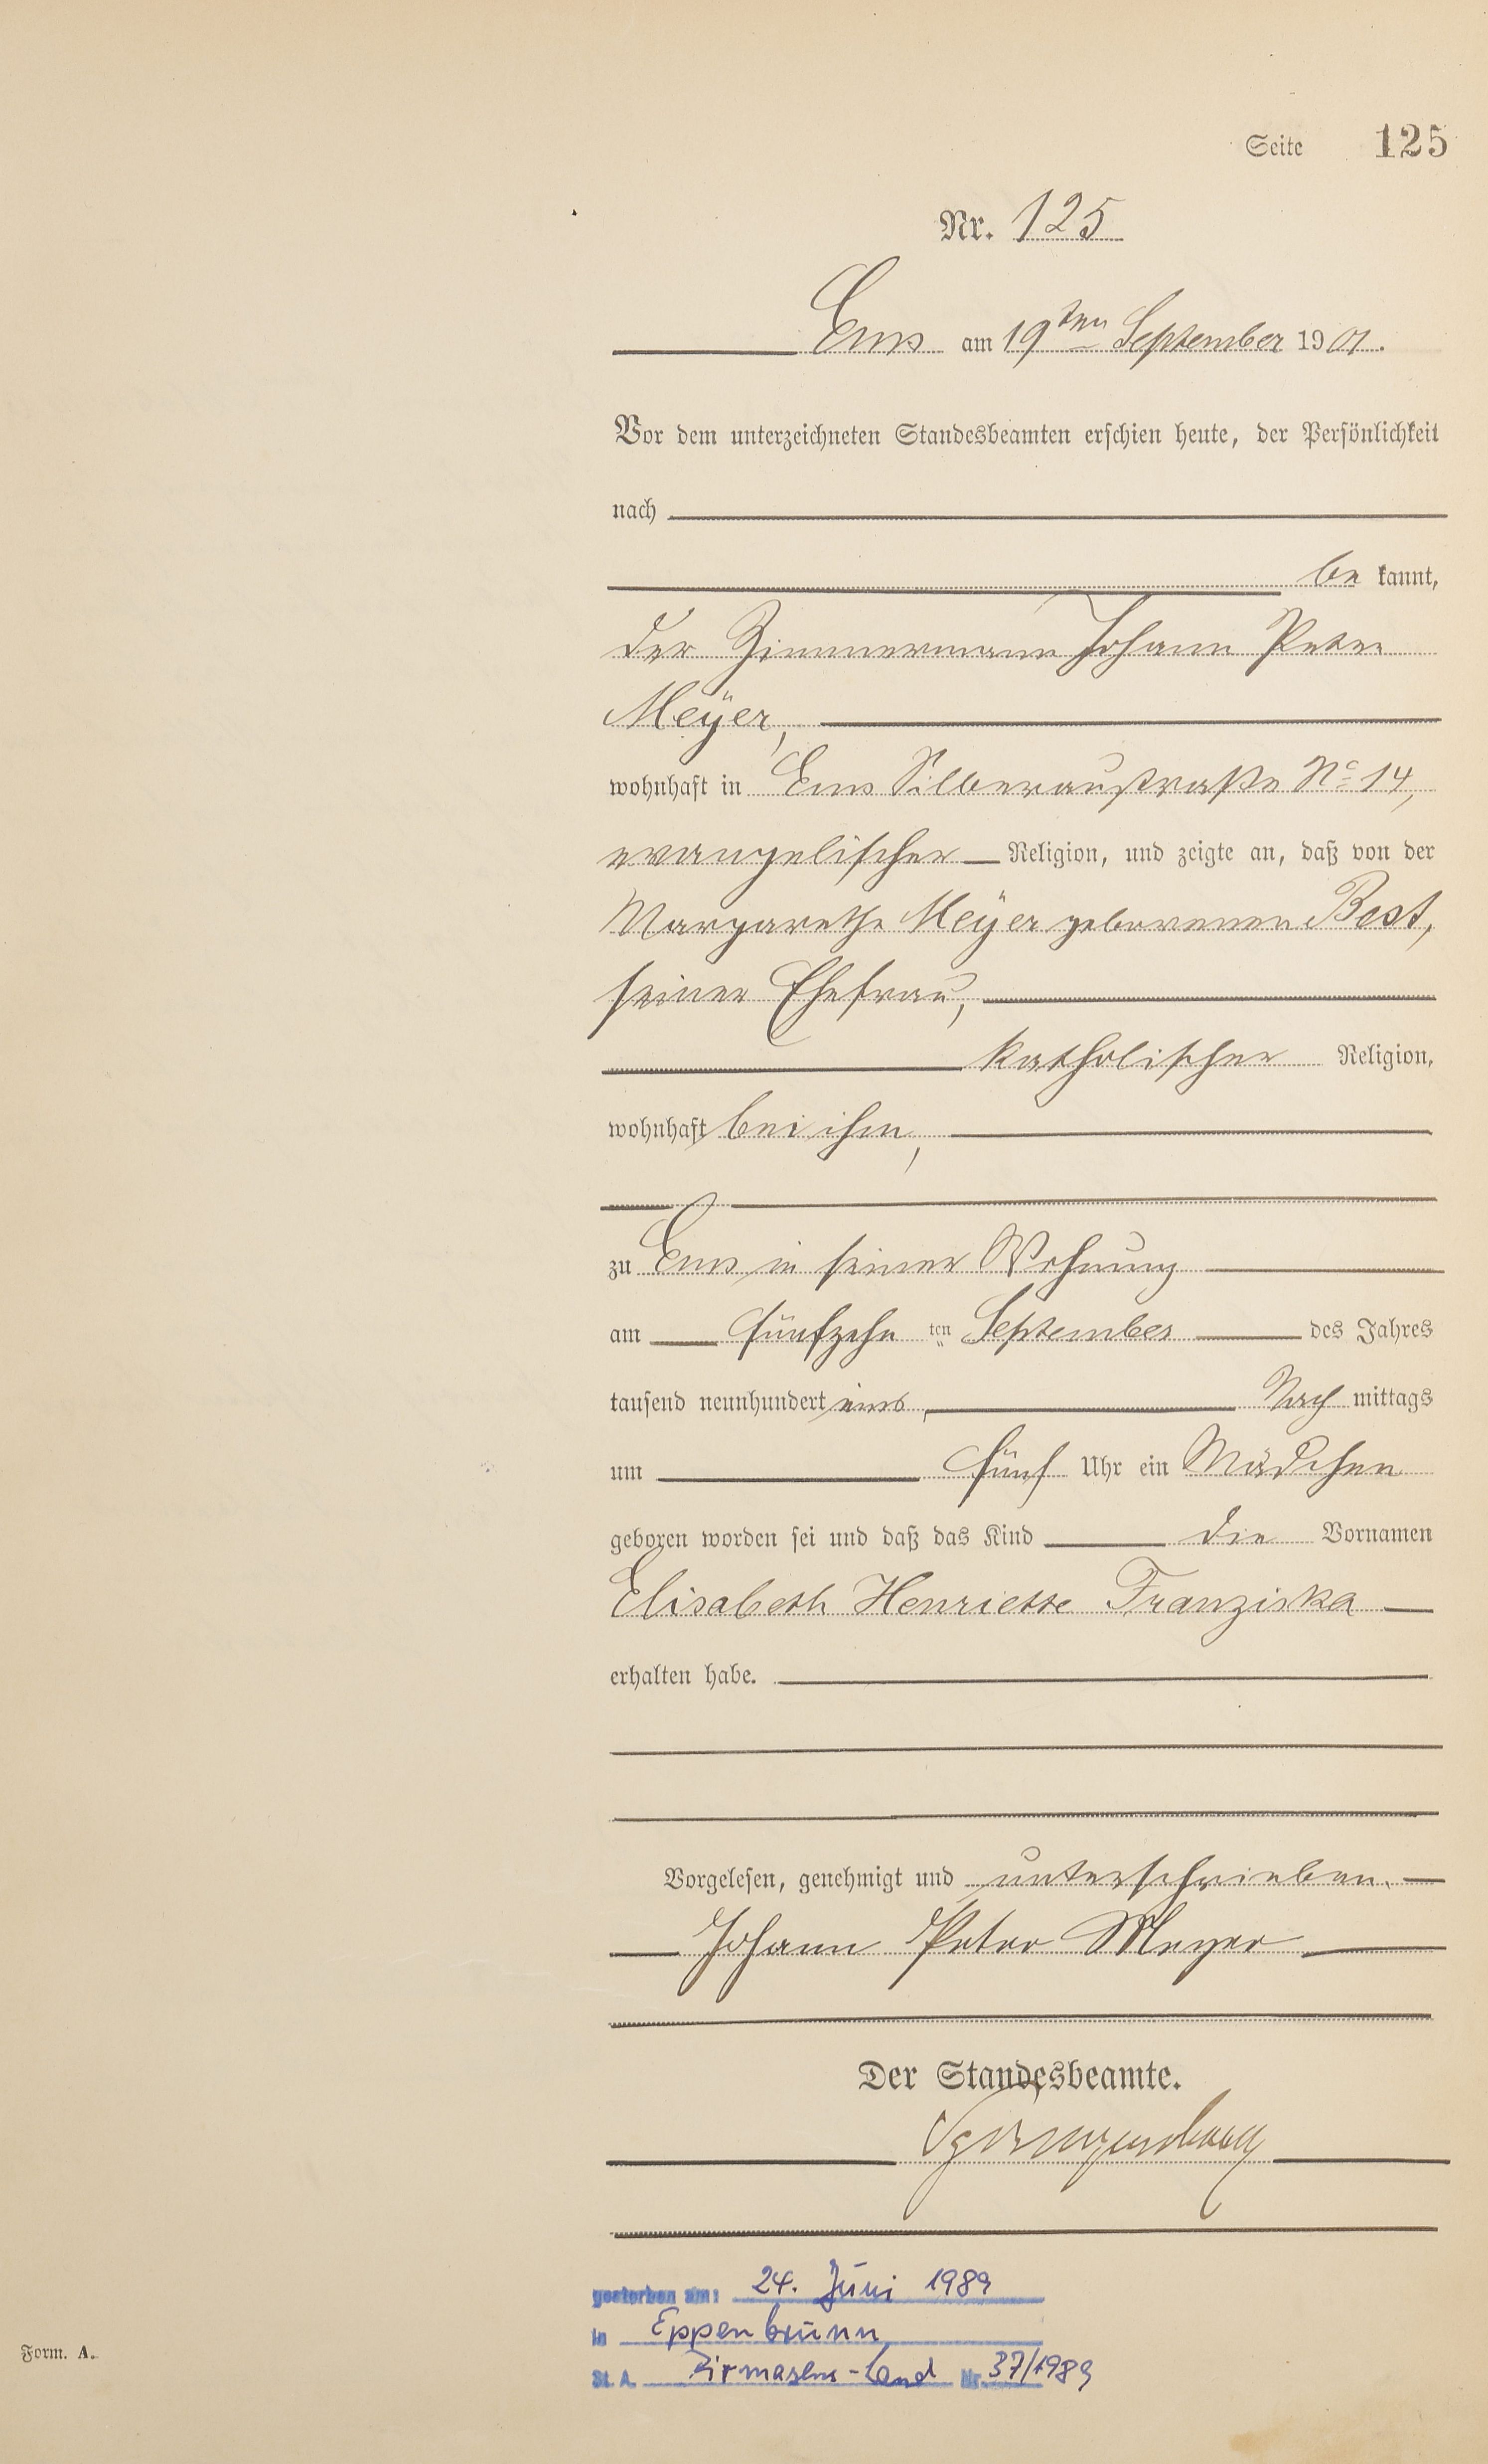 Seite 125
Nr. 125
Ems am 19ten September 1901.
Vor dem unterzeichneten Standesbeamten erschien heute, der Persönlichkeit
nach
be kannt,
der Zimmermann Johann Peter
Meÿer,
wohnhaft in Ems Silberaustraße No 14,
evangelischer Religion, und zeigte an, daß von der
Margarethe Meÿer geborenen Best,
seiner Ehefrau,
katholischer Religion,
wohnhaft bei ihm,
zu Ems in seiner Wohnung
am fünfzehn ten September des Jahres
tausend neunhundert eins, Nach mittags
um fünf Uhr ein Mädchen
geboren worden sei und daß das Kind die Vornamen
Elisabeth Henriette Franziska
erhalten habe.
Vorgelesen, genehmigt und unterschrieben.
Johann Peter Meyer
Der Standesbeamte.
gestorben am: 24. Juni 1989
in Eppenbrunn
St. A. Pirmasens-Land Nr. 37/1989
Form. A.